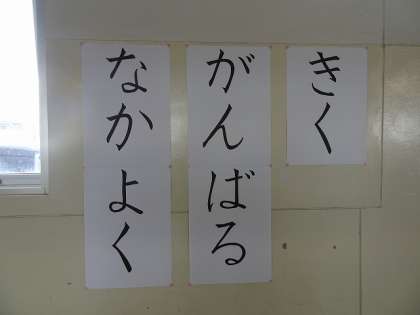 きく
がんばる
なかよく